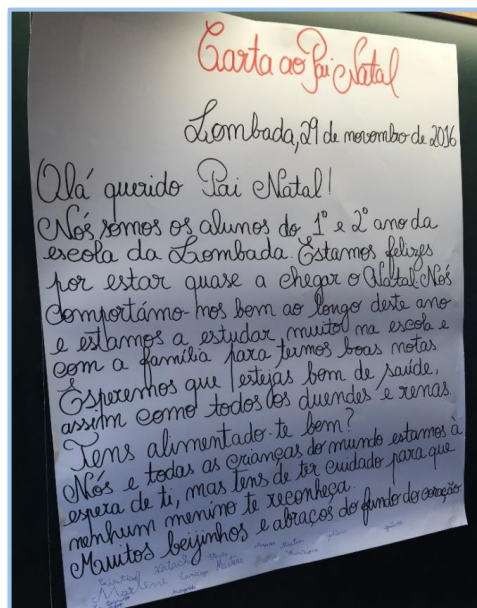 Carta ao Pai Natal
Lombada, 29 de novembro de 2016
Olá querido Pai Natal!
Nós somos os alunos do 1º e 2º ano da
escola da Lombada. Estamos felizes
por estar quase a chegar o Natal. Nós
comportámo-nos bem ao longo deste ano
e estamos a estudar muito na escola e
com a família para termos boas notas.
Esperemos que estejas bom de saúde,
assim como todos os duendes e renas.
Tens alimentado-te bem?
Nós e todas as crianças do mundo estamos à
espera de ti, mas tens de ter cuidado para que
nenhum menino te reconheça.
Muitos beijinhos e abraços do fundo do coração
Marlene